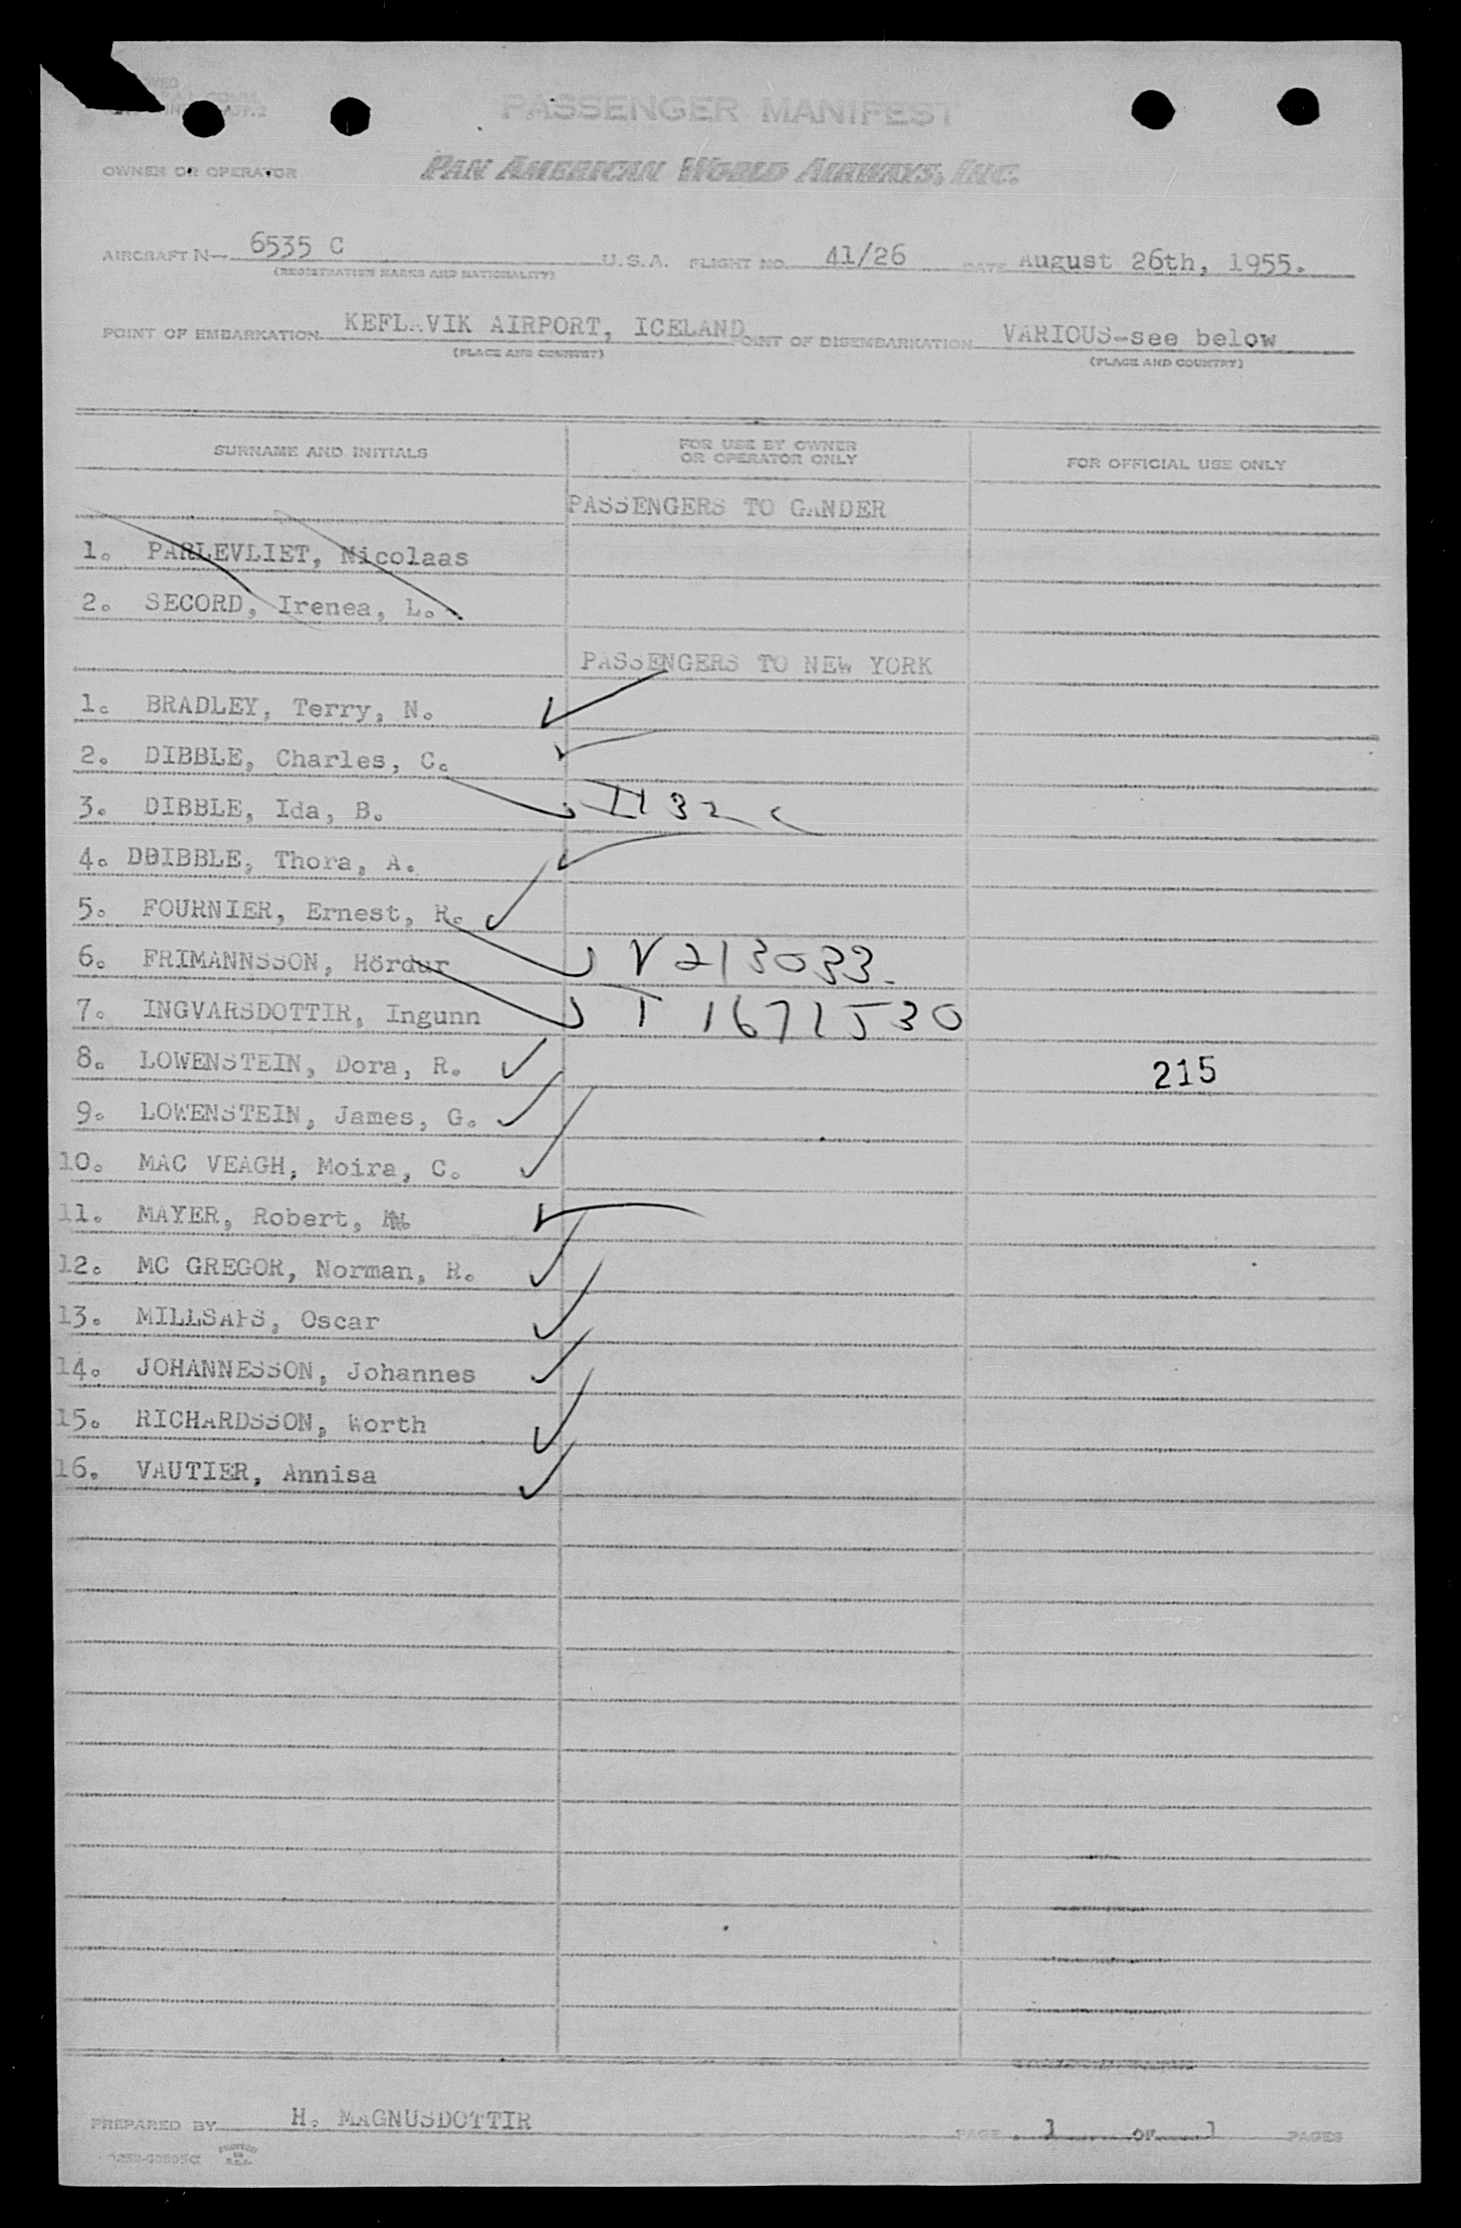 PASSENGER MANIFEST
OWNER OR OPERATOR PAN AMERICAN WORLD AIRWAYS, INC.
AIRCRAFT N- 6535 C U.S.A. FLIGHT NO. 41/26 DATE August 26th, 1955.
(REGISTRATION MARKS AND NATIONALITY)
POINT OF EMBARKATION KEFLAVIK AIRPORT, ICELAND POINT OF DISEMBARKATION VARIOUS-see below
(PLACE AND COUNTRY) (PLACE AND COUNTRY)
SURNAME AND INITIALS FOR USE BY OWNER OR OPERATOR ONLY FOR OFFICIAL USE ONLY
PASSENGERS TO GANDER
1. PARLEVLIET, Nicolaas
2. SECORD, Irenea, L.
PASSENGERS TO NEW YORK
1. BRADLEY, Terry, N.
2. DIBBLE, Charles, C.
3. DIBBLE, Ida, B.
4. DDIBBLE, Thora, A.
5. FOURNIER, Ernest, R.
6. FRIMANNSSON, Hördur V213033
7. INGVARSDOTTIR, Ingunn T 1671530
8. LOWENSTEIN, Dora, R. 215
9. LOWENSTEIN, James, G.
10. MAC VEAGH, Moira, C.
11. MAYER, Robert,
12. MC GREGOR, Norman, R.
13. MILLSAPS, Oscar
14. JOHANNESSON, Johannes
15. RICHARDSSON, Worth
16. VAUTIER, Annisa
PREPARED BY H. MAGNUSDOTTIR PAGE 1 OF 1 PAGES